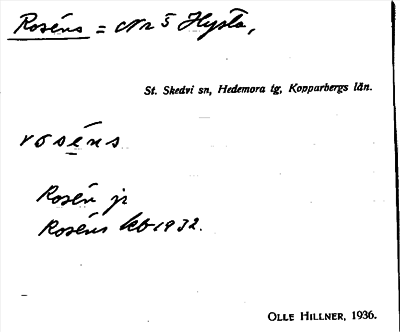 Roséns = Nr 5 Hysta,
St. Skedvi sn, Hedemora tg, Kopparbergs län.
roséns
Rosén jr
Roséns kb 1932.
OLLE HILLNER, 1936.